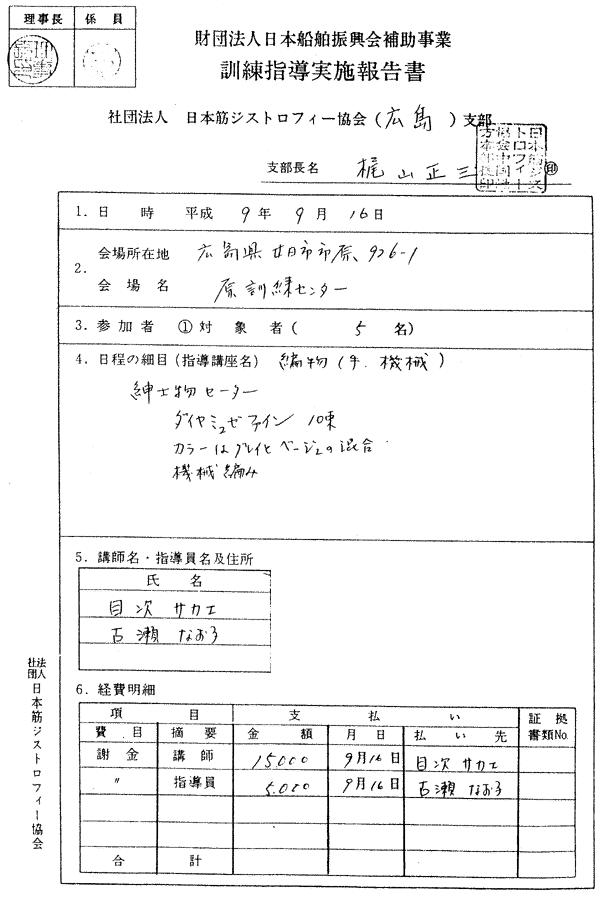 理事長 係員
財団法人日本船舶振興会補助事業
訓練指導実施報告書
社団法人 日本筋ジストロフィー協会(広島)支部
支部長名 梶山正三 印
1.日時 平成 9年 9月 16日
2.
会場所在地 広島県廿日市市原、926-1
会場名 原訓練センター
3.参加者 ①対象者( 5 名)
4.日程の細目(指導講座名) 編物(手.機械)
紳士物セーター
ダイヤミュゼファイン 10束
カラーはグレイとベージュの混合
機械編み
5.講師名・指導員名及住所
氏名
目次 サカエ
古瀬 なお子
6.経費明細
項目 支払い 証拠書類No.
費目 摘要 金額 月日 払い先
謝金 講師 15.000 9月16日 目次 サカエ
〃 指導員 5.000 9月16日 古瀬 なお子
合計
社団法人 日本筋ジストロフィー協会